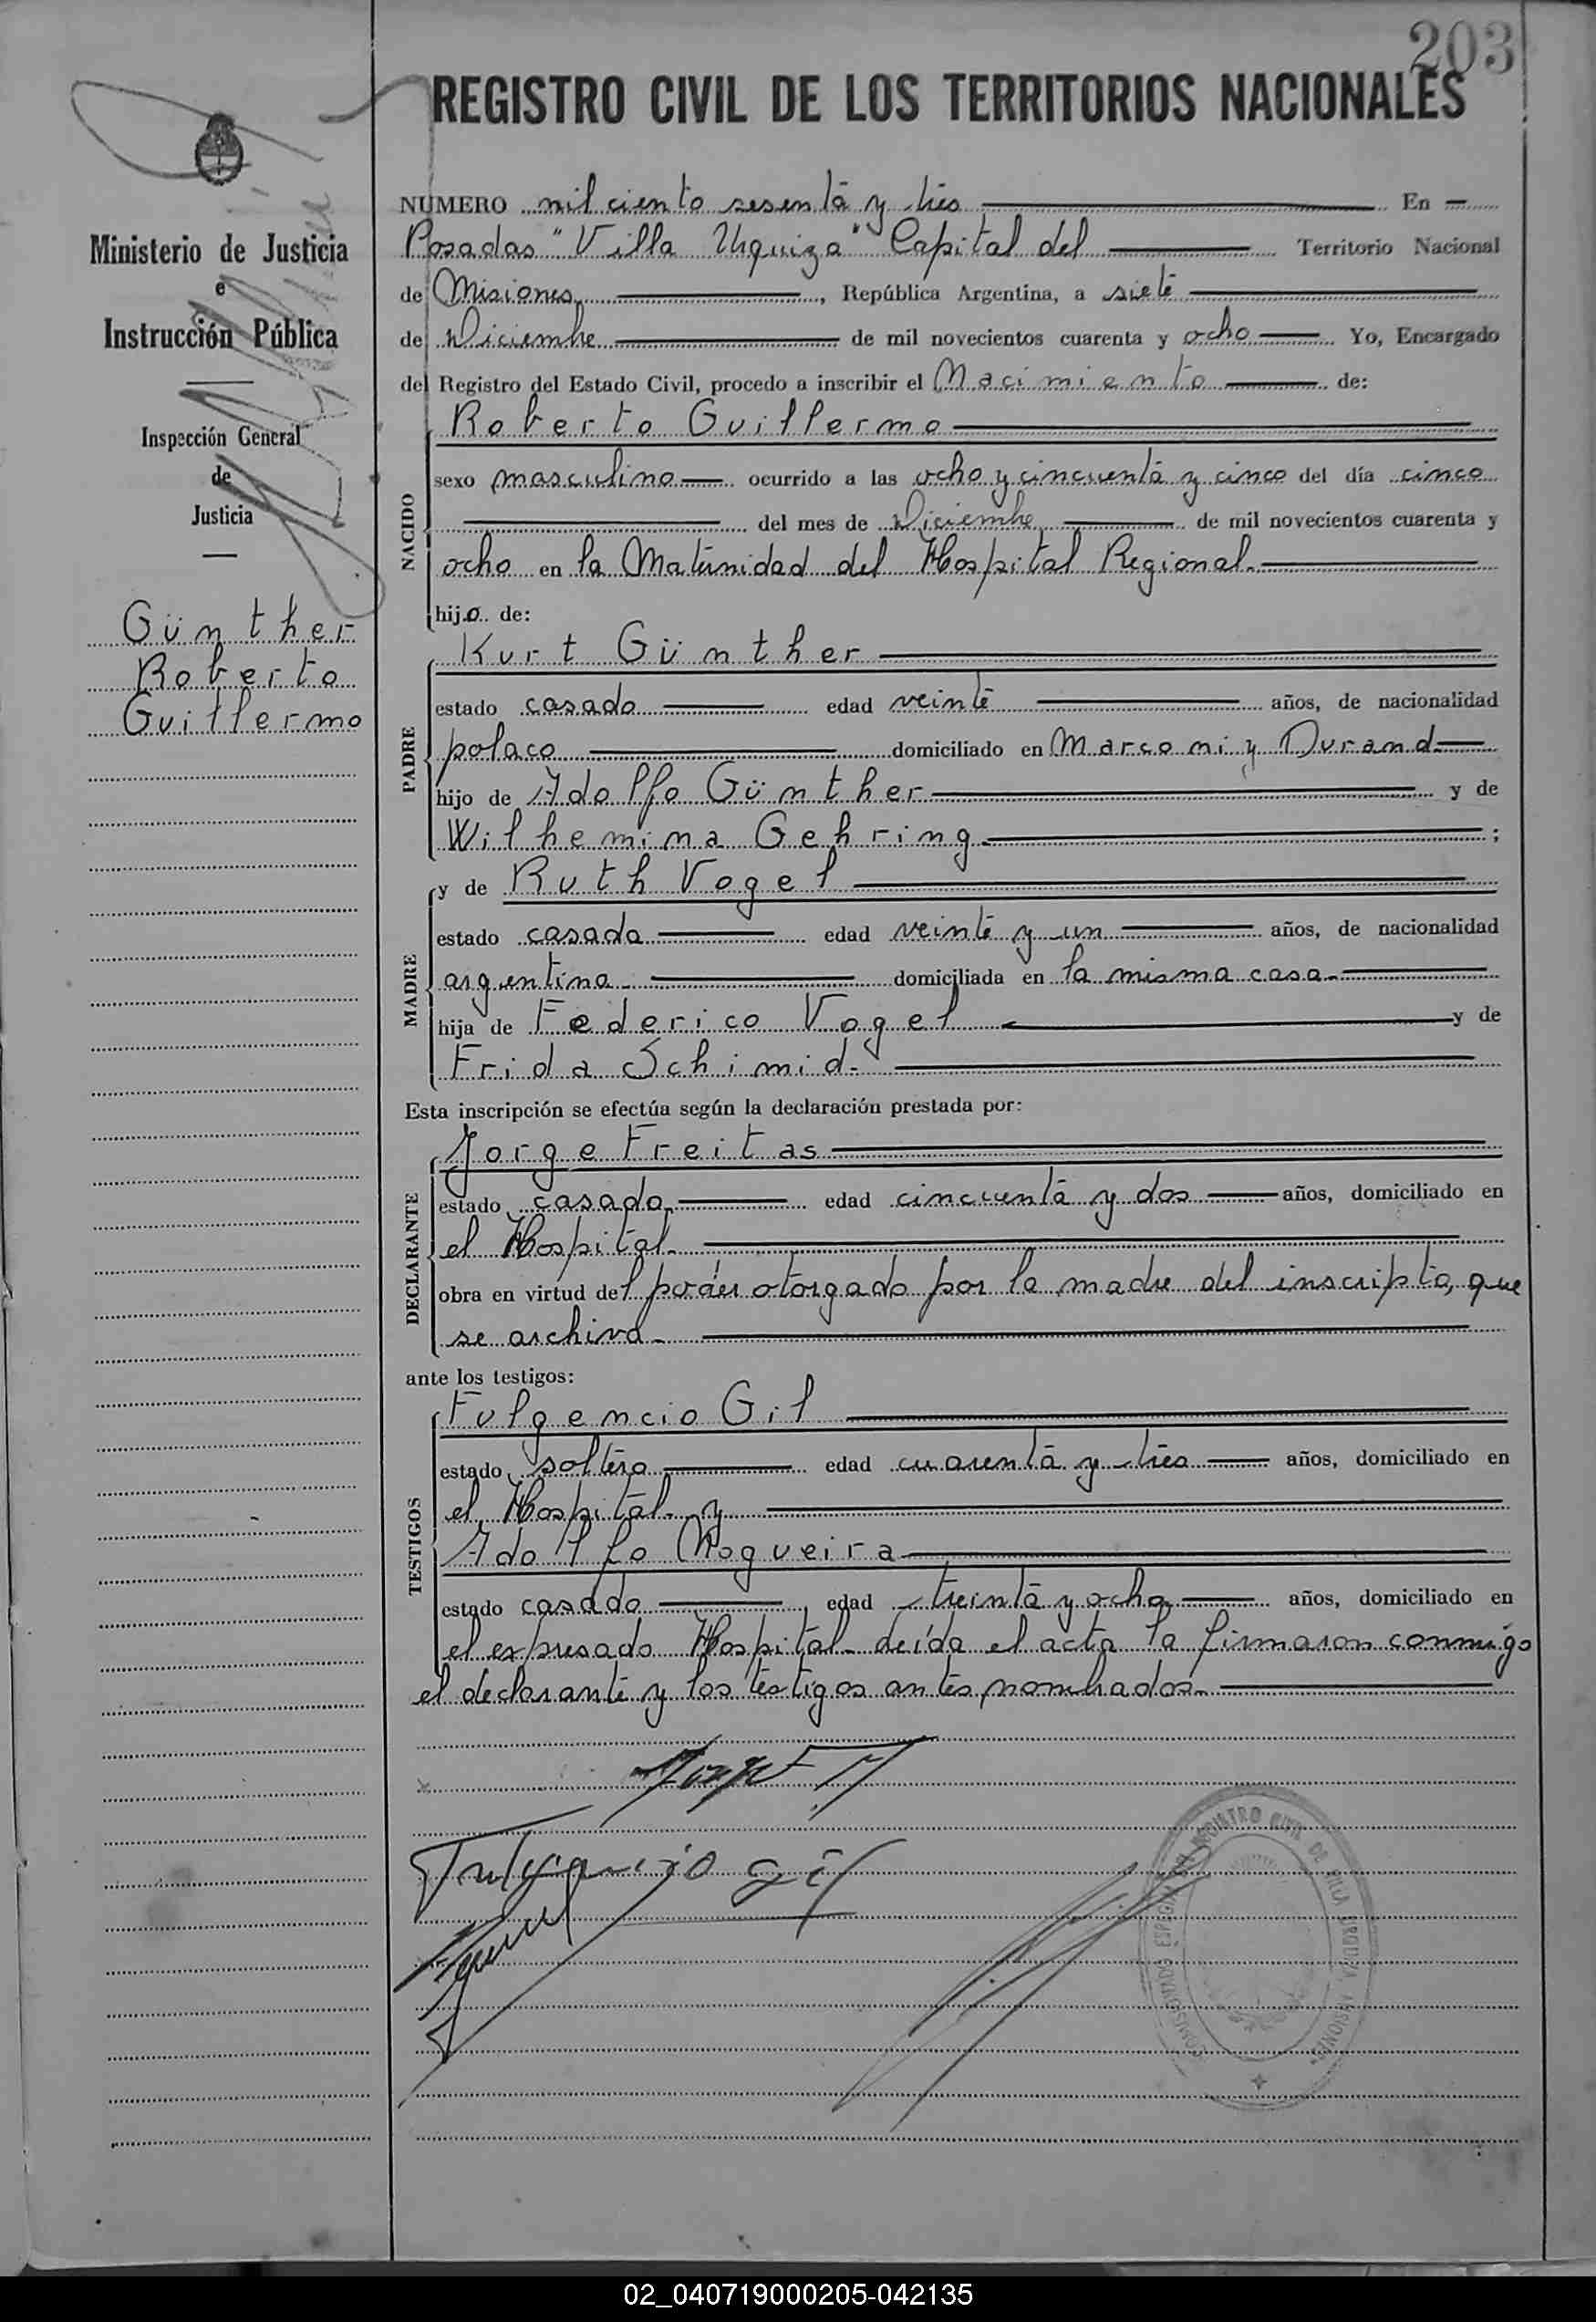 203
REGISTRO CIVIL DE LOS TERRITORIOS NACIONALES
Ministerio de Justicia
e
Instrucción Pública
Inspección General
de
Justicia
Günther
Roberto
Guillermo
NUMERO mil ciento sesenta y tres En
Posadas "Villa Urquiza" Capital del Territorio Nacional
de Misiones, República Argentina, a siete
de Diciembre de mil novecientos cuarenta y ocho Yo, Encargado
del Registro del Estado Civil, procedo a inscribir el Nacimiento de:
NACIDO
Roberto Guillermo
sexo masculino ocurrido a las ocho y cincuenta y cinco del día cinco
del mes de Diciembre de mil novecientos cuarenta y
ocho en la Maternidad del Hospital Regional.
hijo de:
PADRE
Kurt Günther
estado casado edad veinte años, de nacionalidad
polaco domiciliado en Marconi y Durand
hijo de Adolfo Günther y de
Wilhemina Gehring ;
MADRE
y de Ruth Vogel
estado casada edad veinte y un años, de nacionalidad
argentina domiciliada en la misma casa
hija de Federico Vogel y de
Frida Schimid.
Esta inscripción se efectúa según la declaración prestada por:
DECLARANTE
Jorge Freitas
estado casado edad cincuenta y dos años, domiciliado en
el Hospital.
obra en virtud del poder otorgado por la madre del inscripto, que
se archiva
ante los testigos:
TESTIGOS
Fulgencio Gil
estado soltero edad cuarenta y tres años, domiciliado en
el Hospital y
Adolfo Nogueira
estado casado edad treinta y ocho años, domiciliado en
el expresado Hospital. Leída el acta la firmaron conmigo
el declarante y los testigos antes nombrados.
Fulgencio Gil
REGISTRO CIVIL DE VILLA URQUIZA MISIONES
02_040719000205-042135